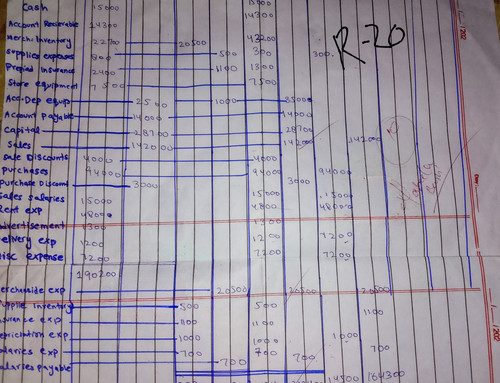 Cash 15000 15000
Account Receivable 14300 14300
Merch: Inventory 22700 20500 43200
Supplies expenses 800 500 300 300
Prepaid insurance 2400 1100 1300
Store equipment 7500 7500
Acc-Dep equip 2500 1000 35000
Account Payable 14000 14000
Capital 28700 28700
Sales 142000 142000 142000
Sale Discounts 4000 4000
Purchases 94000 94000 94000
Purchase Discount 3000 3000
Sales salaries 15000 15000 15000
Rent exp 48000 4800 48000
dvertisement 1300 1300
elivery exp 1200 1200 7200
isc expense 7200 7200 7200
190200
erchandise exp 20500 20500 20500
upplie inventory 500 500
surance exp 1100 1100
epriciation exp 1000 1000 1000
alaries exp 700 700 700
alaries payable 700 700
14500 164300
R-20